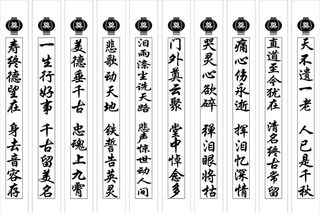 奠 奠 奠 奠 奠 奠 奠 奠 奠 奠
天不遗一老 人已是千秋
直道至今犹在 清名终古常留
痛心伤永逝 挥泪忆深情
哭灵心欲碎 弹泪眼将枯
门外奠云聚 堂中悼念多
泪雨涤尘洗天路 悲声惊世动人间
悲歌动天地 铁誓告英灵
美德垂千古 忠魂上九霄
一生行好事 千古留美名
寿终德望在 身去音容存